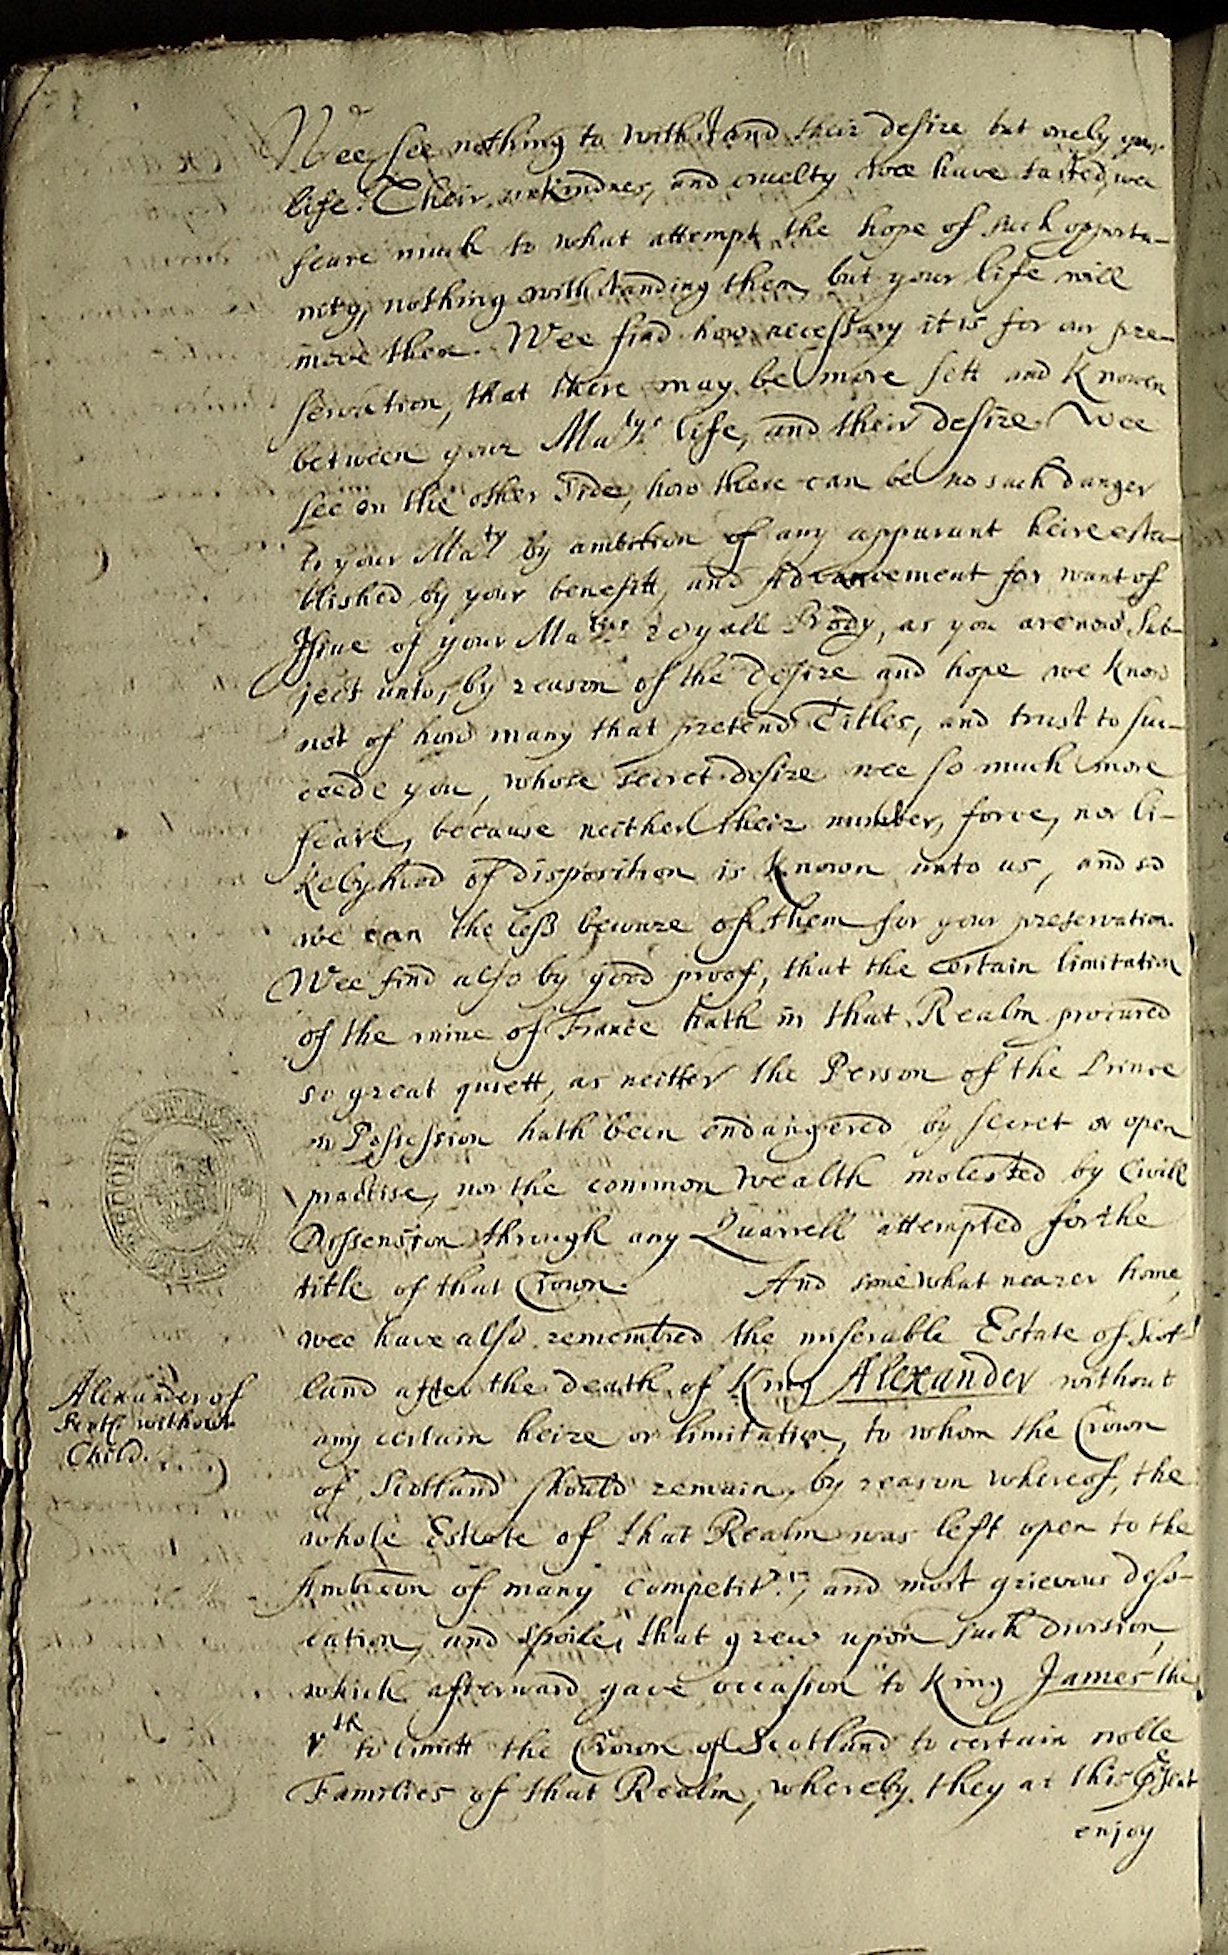 Wee see nothing to withstand their desire but onely your
life. Their unkindnes, and cruelty wee have tasted, wee
feare much to what attempt the hope of such opportu-
nity, nothing withstanding them but your life will
move them. Wee find how necessary it is for our pre-
servation, that there may be more sett and knowen
between your Ma.tys life, and their desire. Wee
see on the other side, how there can be no such danger
to your Ma.ty by ambition of any apparant heire esta-
blished by your benefitt, and Advancement for want of
Issue of your Ma.ties royall Body, as you are now Sub-
ject unto, by reason of the desire and hope we know
not of how many that pretend Titles, and trust to suc-
ceede you, whose secret desire wee so much more
feare, because neither their number, force, nor li-
kelyhood of disposition is known unto us, and so
we can the less beware of them for your preservation.
Wee find also by good proof, that the certain limitation
of the Crowne of France hath in that Realm procured
so great quiett, as neither the Person of the Prince
in Possession hath been endangered by secret or open
practise, nor the common Wealth molested by Civill
Dissension through any Quarrell attempted for the
title of that Crown. And somewhat nearer home,
wee have also remembred the miserable Estate of Scot-
land after the death of King Alexander without
any certain heire or limitation, to whom the Crown
of Scotland should remain, by reason whereof, the
whole Estate of that Realm was left open to the
Ambic̃on of many competit.rs, and most grievous deso-
lation, and spoile, that grew upon such division,
which afterward gave occasion to King James the
V.th to limitt the Crown of Scotland to certain noble
Families of that Realm, whereby they at this p̃sent
enjoy
Alexander of
Scotl: without
Child.
RECORD OFFICE